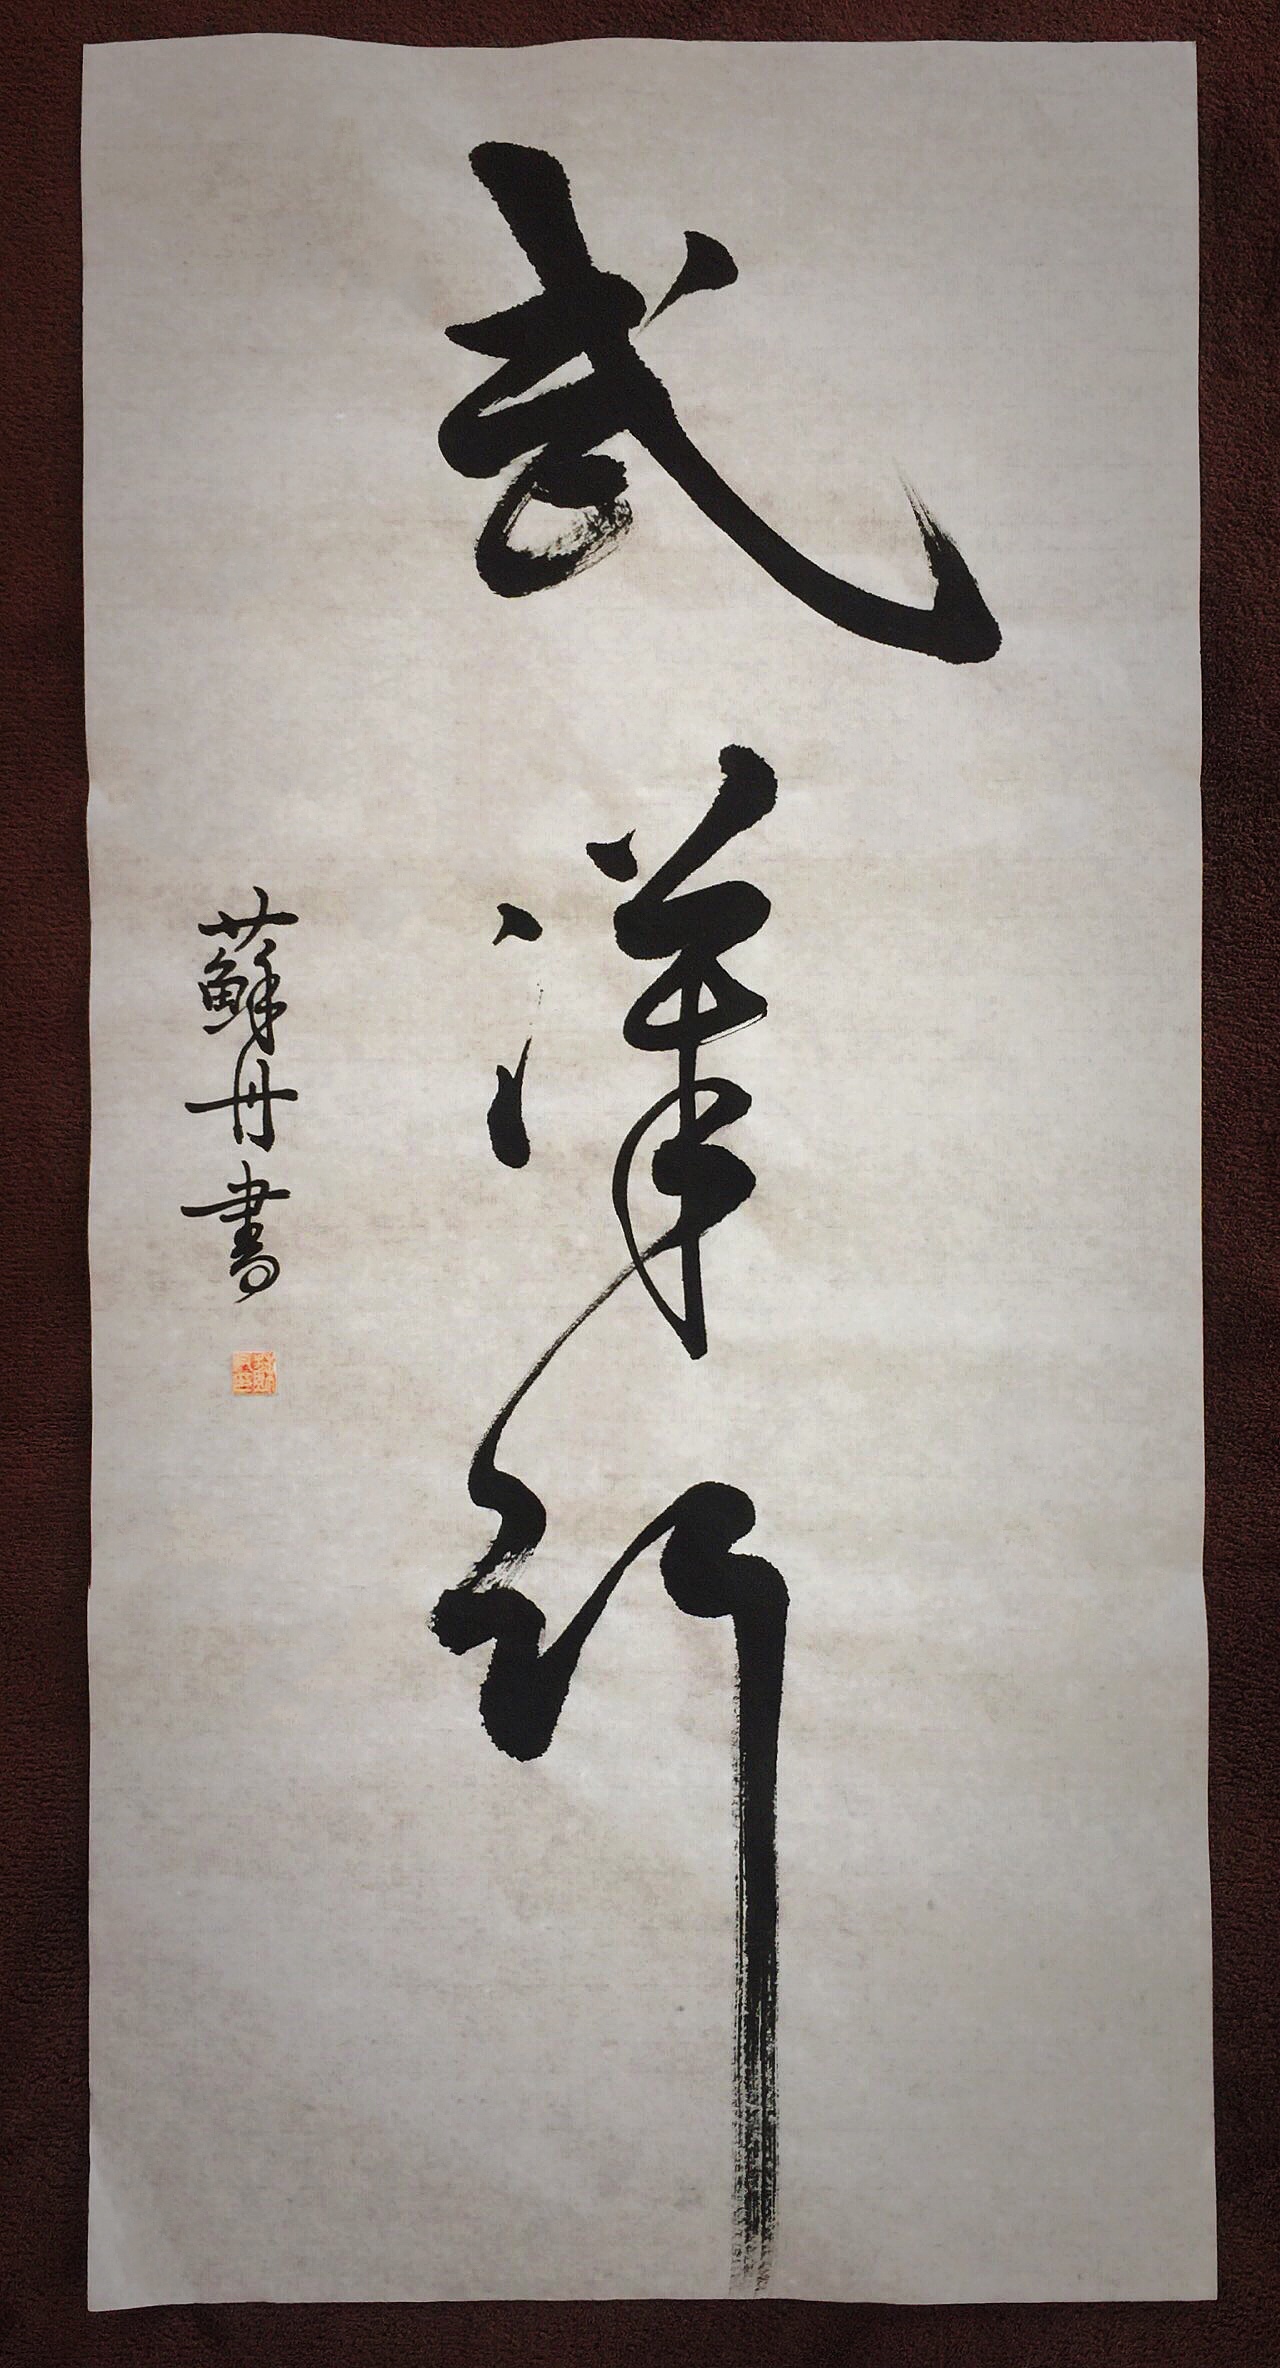 武漢行
蘇丹書